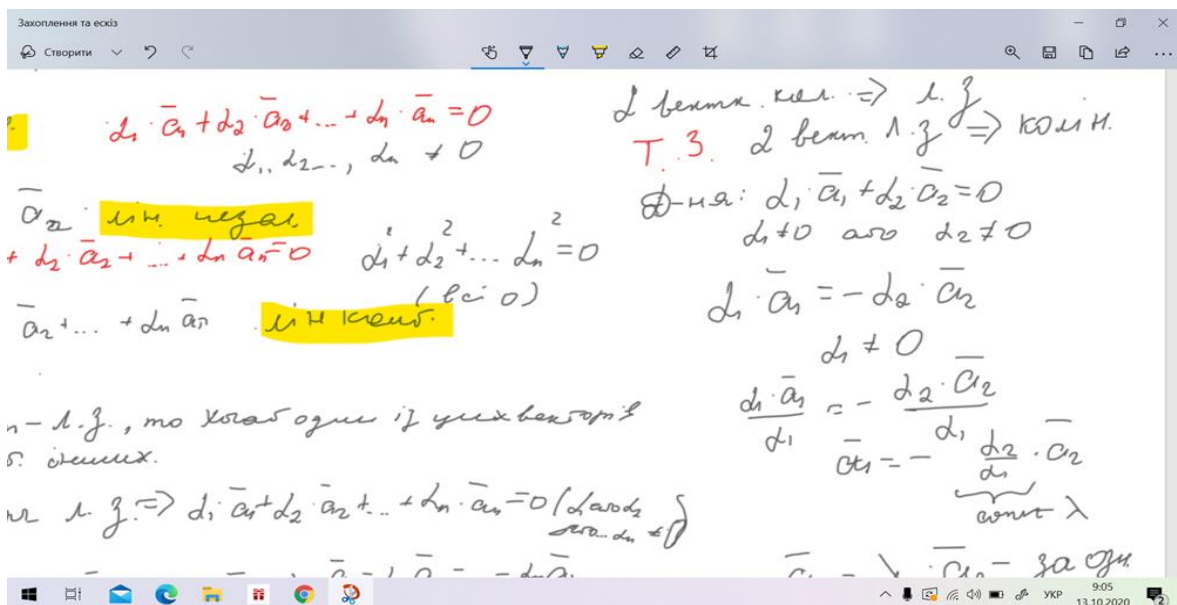 Захоплення та ескіз
Створити
α₁ · a̅₁ + α₂ · a̅₂ + ... + αₙ · a̅ₙ = 0
α₁, α₂ ..., αₙ ≠ 0
a̅₂ лін. незал.
+ α₂ · a̅₂ + ... + αₙ a̅ₙ = 0
α₁² + α₂² + ... αₙ² = 0
(всі 0)
a̅₂ + ... + αₙ a̅ₙ лін комб.
– л.з., то хочаб один із цих векторів
інших.
л.з. => α₁ · a̅₁ + α₂ · a̅₂ + ... + αₙ · a̅ₙ = 0 (α₁ або α₂
або ... αₙ ≠ 0)
2 вект. кол. => л.з
Т.3. 2 вект. л.з => колін.
Д-ня: α₁ · a̅₁ + α₂ · a̅₂ = 0
α₁ ≠ 0 або α₂ ≠ 0
α₁ · a̅₁ = – α₂ · a̅₂
α₁ ≠ 0
α₁ · a̅₁ / α₁ = – α₂ · a̅₂ / α₁
a̅₁ = – α₂ / α₁ · a̅₂
const λ
– за озн.
УКР
9:05
13.10.2020
2